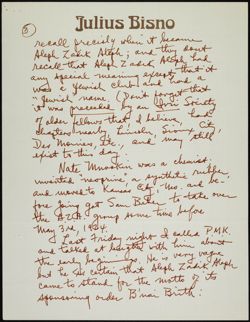 Julius Bisno
5
recall precisely when it became
Aleph Zadik Aleph; and they don't
recall that Aleph Zadik Aleph had
any special meaning except that it
was a Jewish club and had a
Jewish name. (Don't forget that
it was preceded by an Society
of older fellows that I believe, had
chapters nearby Lincoln, Sioux City,
Des Moines, etc., and may still
exist to this day.
Nate Mnookin was a chemist,
invented "neoprine" a synthetic rubber,
and moved to Kansas City, Mo. and be-
fore going got Sam Beber to take over
the A.Z.A. group some time before
May 3rd, 1924.
Last Friday night I called P.M.K.
and talked at length with him about
the early beginnings. He is very vague
but he is certain that Aleph Zadik Aleph
came to stand for the motto of its
sponsoring order B'nai B'rith: